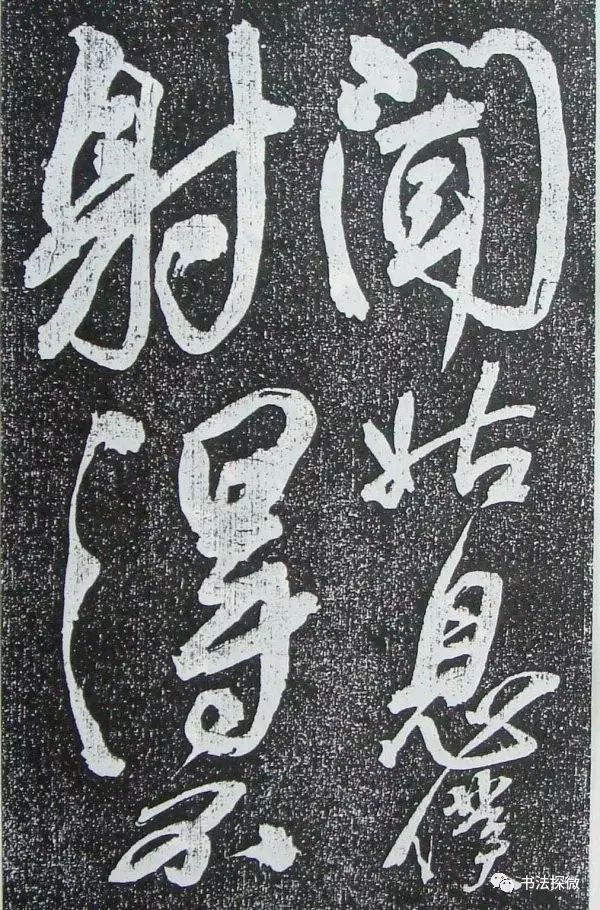 聞姑息僕
射得不
书法探微